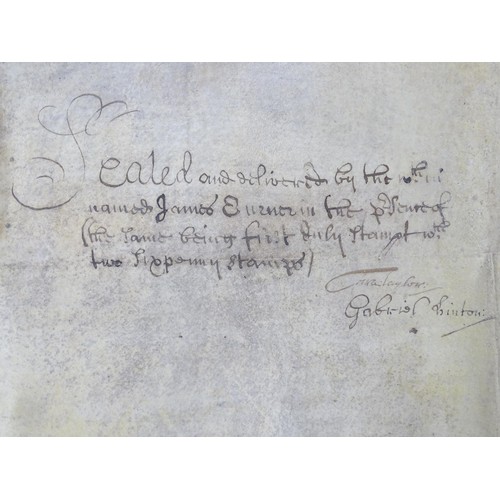 Sealed and delivered by the wthin
named James Turner in the prsence of
(the same being first duly stampt wth
two sixpenny stamps)
Taylor.
Gabriel Hinton.